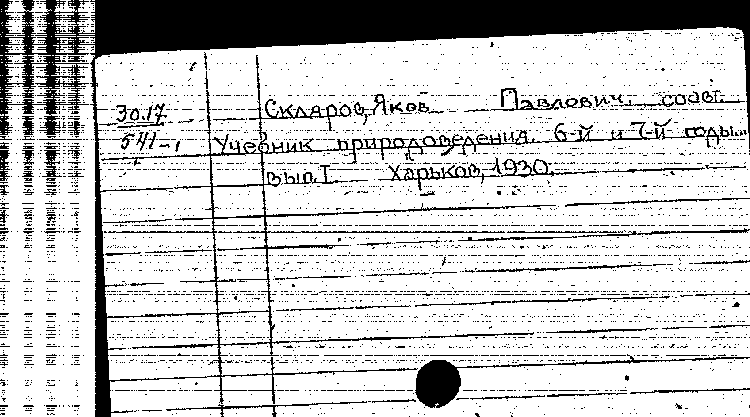 30.17 Скляров, Яков Павлович. соавт.
541-1 Учебник природоведения. 6-й и 7-й годы...
вып. I. Харьков, 1930.